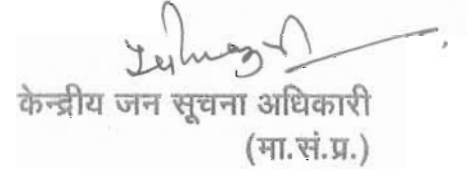 केन्द्रीय जन सूचना अधिकारी
(मा.सं.प्र.)